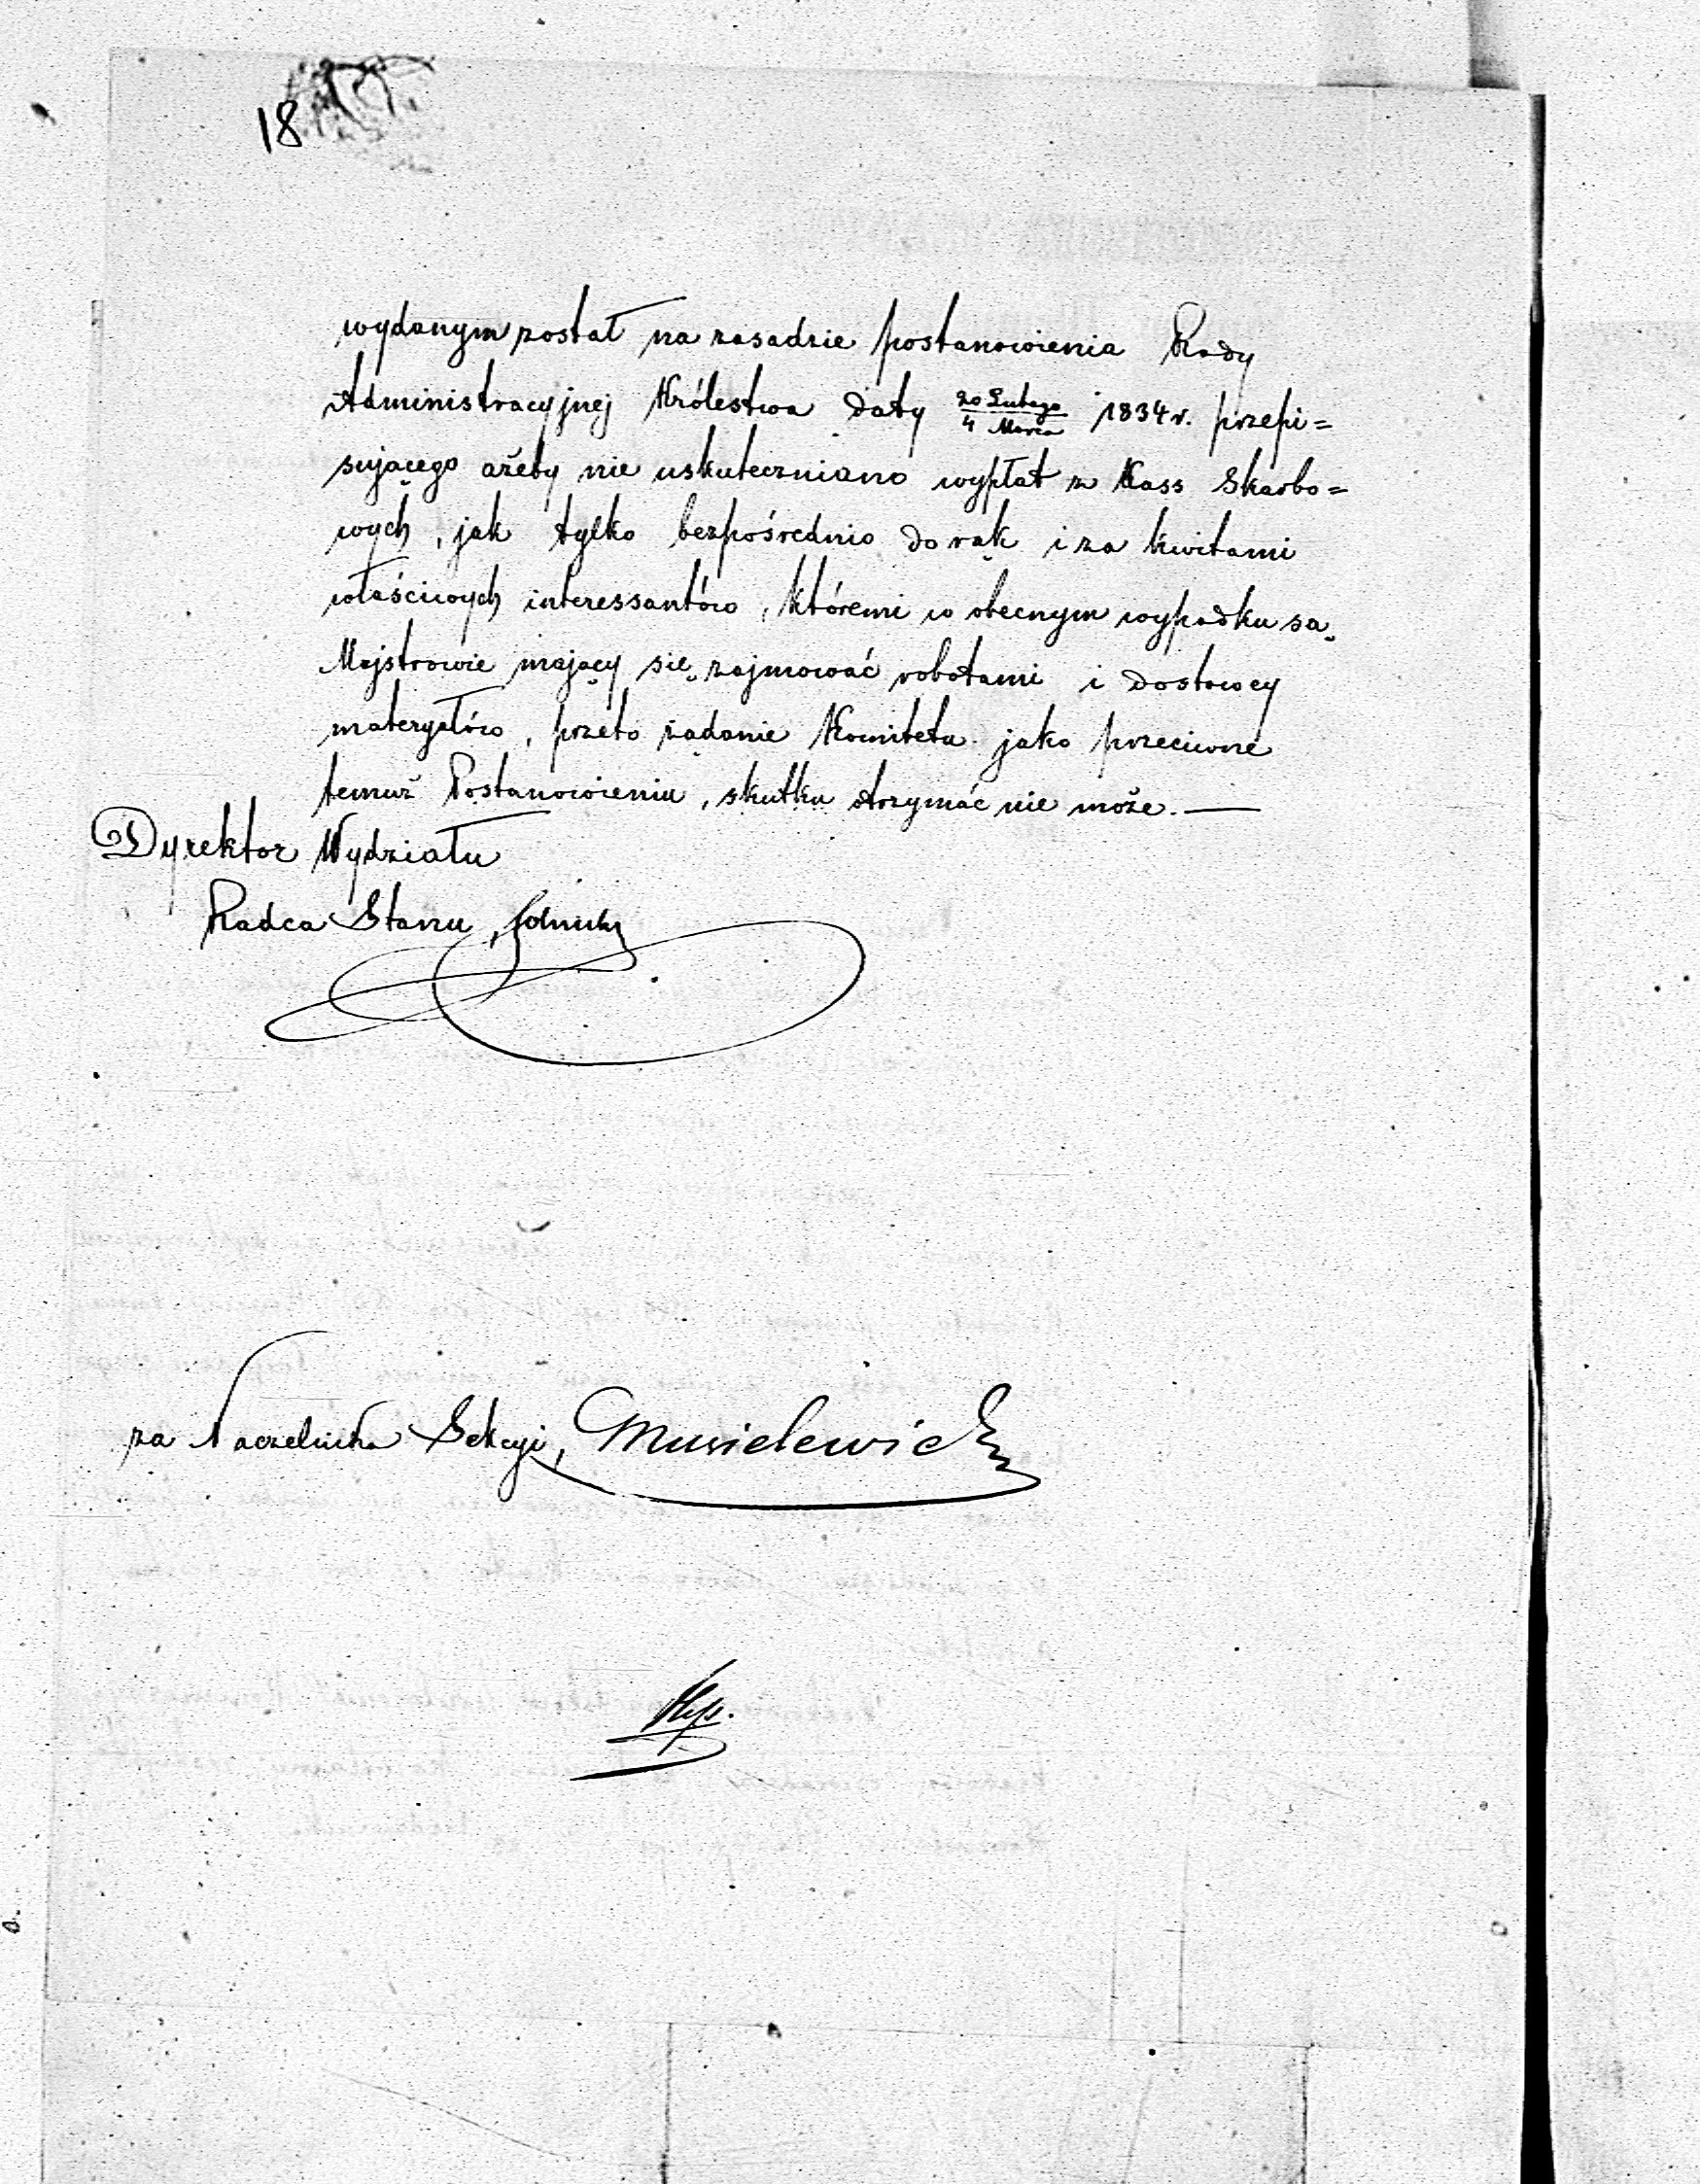 18
wydanym został na zasadzie postanowienia Rady
Administracyjnej Królestwa daty 20 Lutego / 4 Marca 1834 r. przepi=
sującego ażeby nie uskuteczniano wypłat z Kass Skarbo=
wych, jak tylko bezpośrednio do rąk i za kwitami
właściwych interessantów, któremi w obecnym wypadku są
Majstrowie mający się zajmować robotami i dostawcy
materyałów, przeto żądanie Komitetu jako przeciwne
temuż Postanowieniu, skutku otrzymać nie może. —
Dyrektor Wydziału
Radca Stanu,
za Naczelnika Sekcyi, Musielewicz